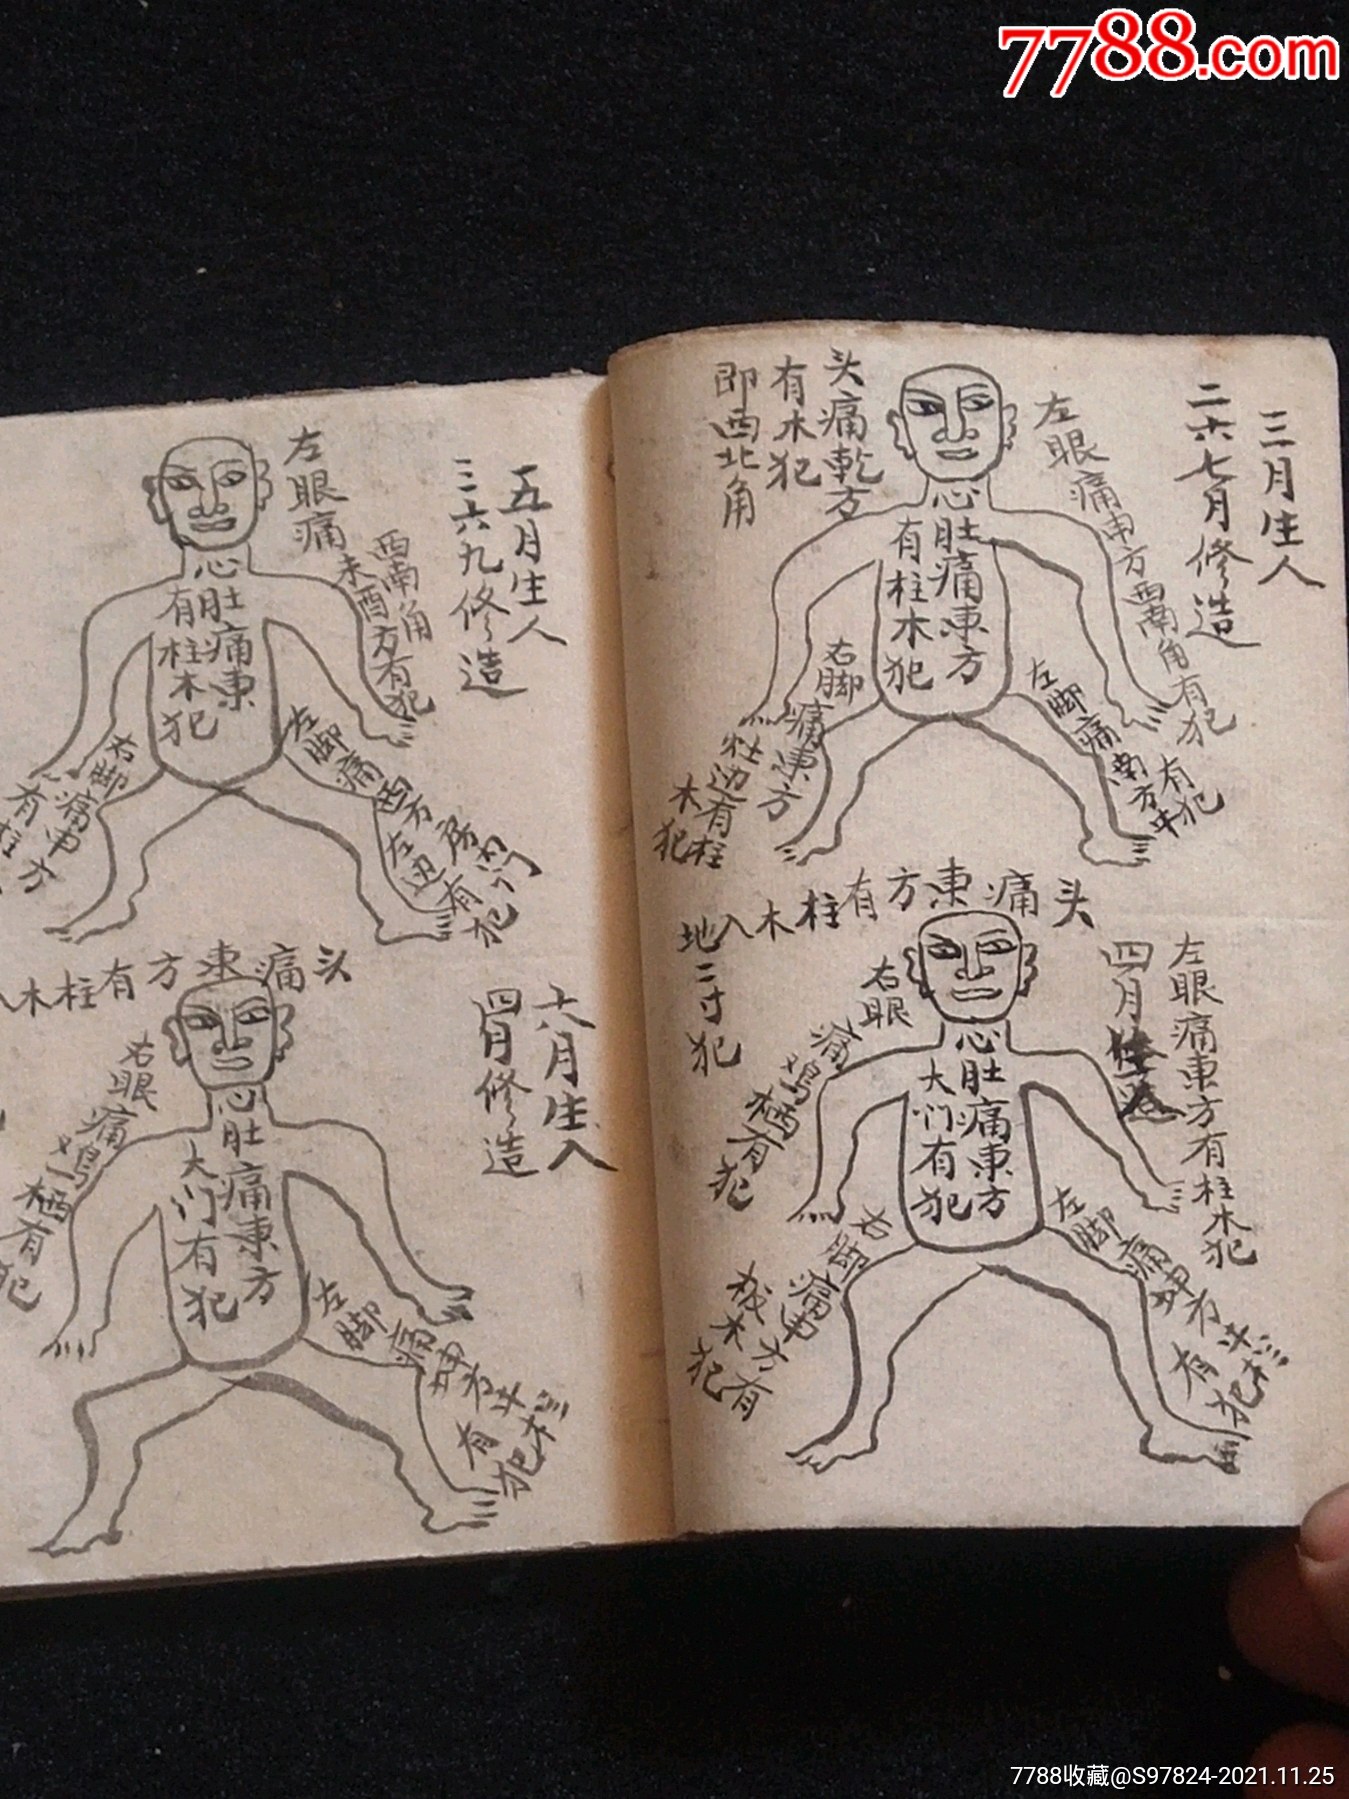 7788.com
三月生人
二六七月修造
左眼痛南方西南角有犯
头痛乾方
有木犯
即西北角
心肚痛东方
有柱木犯
左脚痛南方牛
有犯
右脚痛东方
灶边有柱
木犯
头痛东方有柱木入
地二寸犯
四月
左眼痛东方有柱木犯
右眼痛鸡栖有犯
心肚痛东方
大门有犯
左脚痛
有犯
右脚痛申方有
板木犯
五月生人
三六九修造
左眼痛未酉方有犯
西南角
心肚痛东
有柱木犯
左脚痛西方房门
左边有犯
右脚痛申方
有柱
六月生人
四月修造
头痛东方有柱木入
右眼痛鸡栖有犯
心肚痛东方
大门有犯
左脚痛
有犯
7788收藏@S97824-2021.11.25